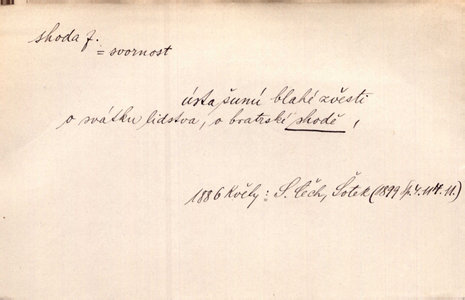 shoda f.
= svornost
ústa šumí blahé zvěsti
o svátku lidstva, o bratrské shodě,
1886 Květy: S. Čech, Šotek (1899 Sp. 4. 11.)